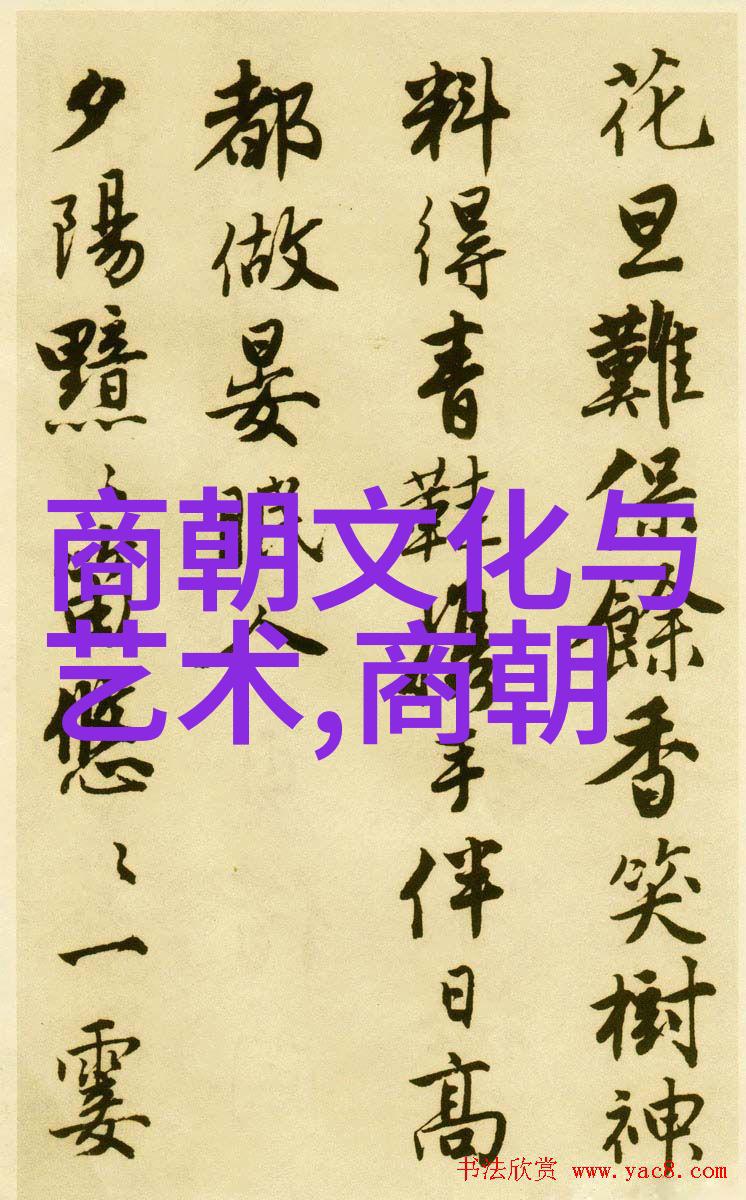 花旦難保餘香笑樹神
料得青鞋攜手伴日高
都做晏眠人
夕陽黯〻笛悠〻一霎
商朝文化与
艺术,商朝
书法欣赏 www.yac8.com